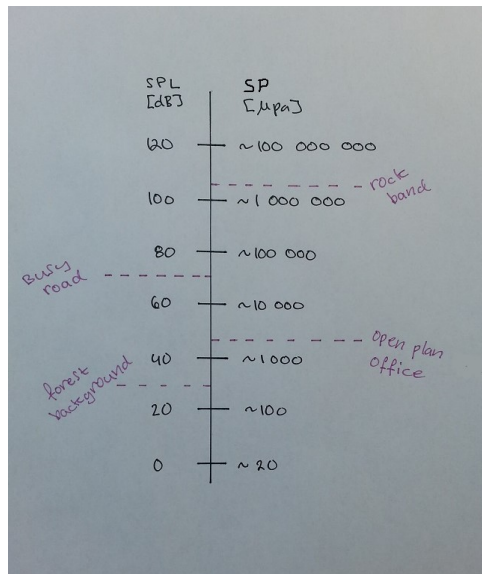 SPL SP
[dB] [μpa]
120 ~100 000 000
rock
band
100 ~1 000 000
80 ~100 000
Busy
road
60 ~10 000
Open plan
Office
40 ~1000
forest
background
20 ~100
0 ~20